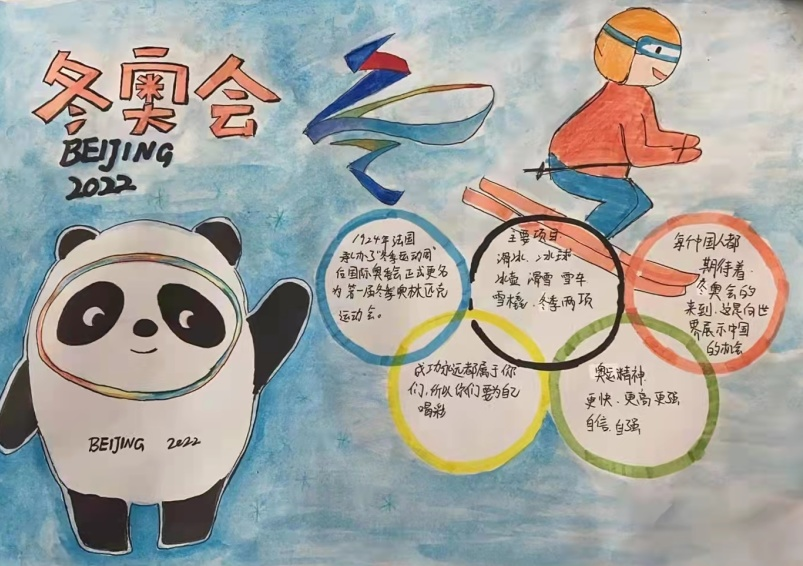 冬奥会
BEIJING
2022
BEIJING 2022
1924年法国
承办了"冬季运动周"
后国际奥委会正式更名
为第一届冬季奥林匹克
运动会。
主要项目
滑冰、冰球
冰壶 滑雪 雪车
雪橇、冬季两项
每个中国人都
期待着
冬奥会的
来到,这是向世
界展示中国
的机会
成功永远都属于你
们,所以你们要为自己
喝彩
奥运精神
更快、更高更强
自信、自强